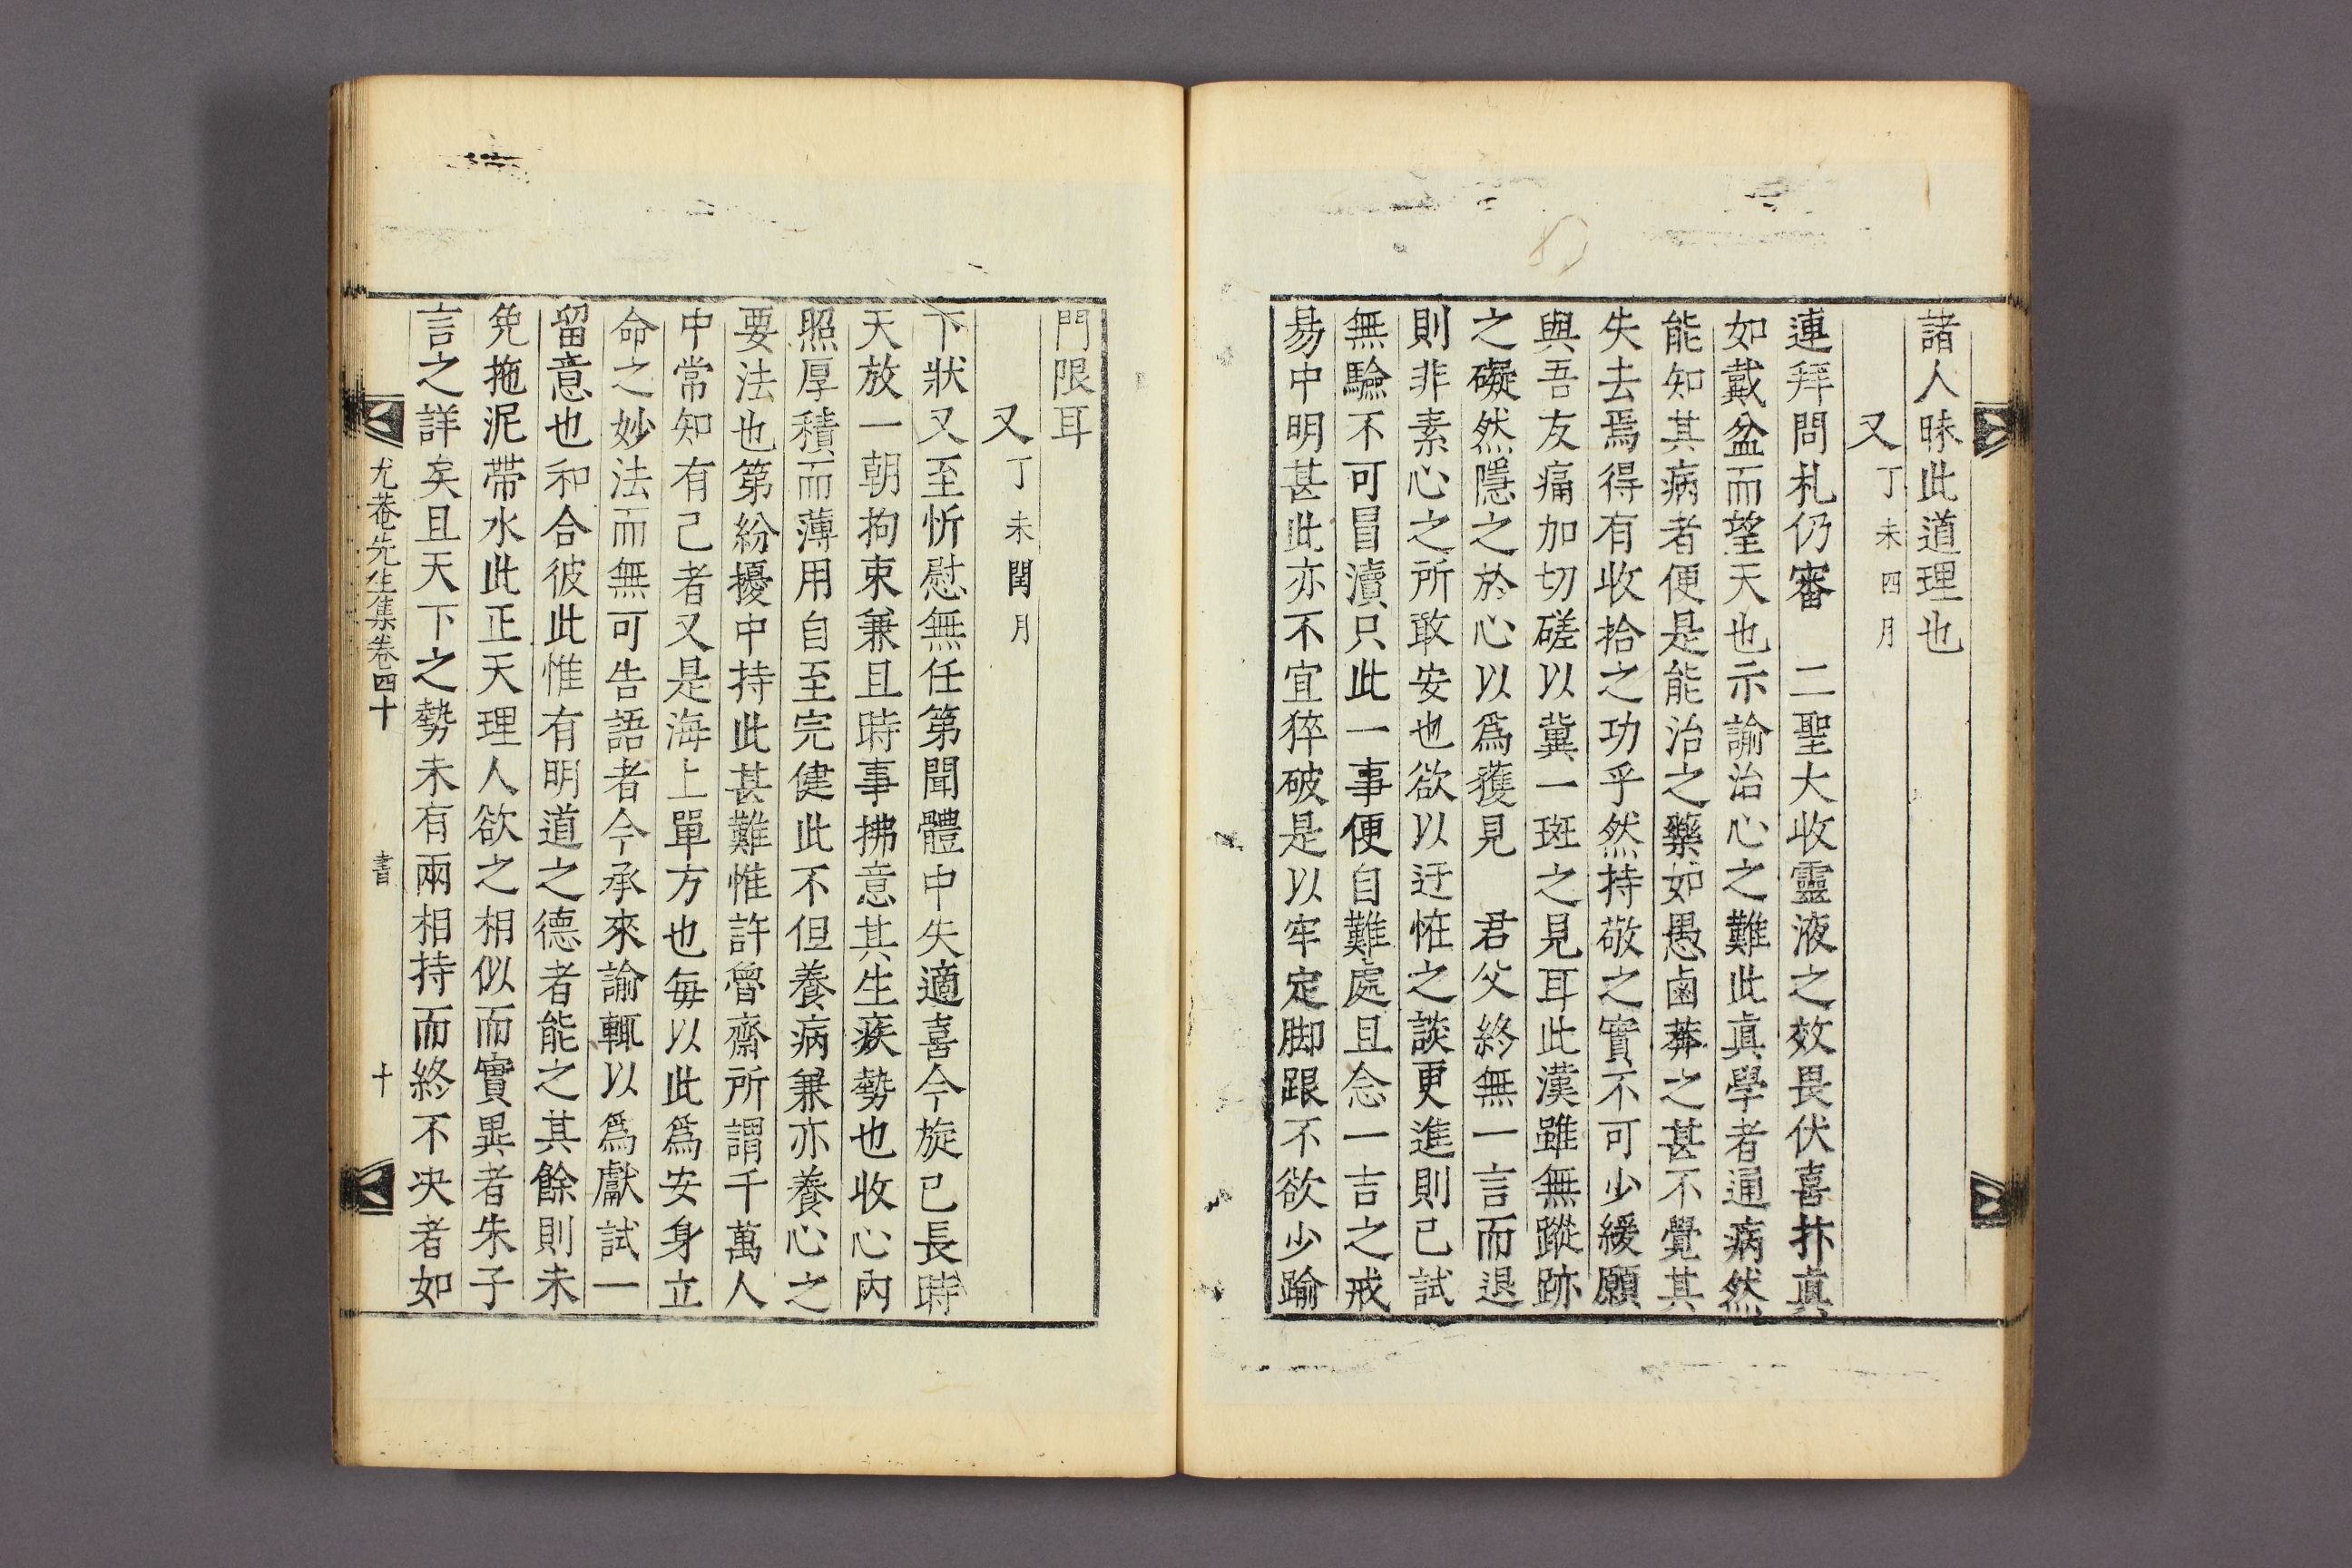 諸人昧此道理也
又丁未四月
連拜問札仍審　二聖大收靈液之效畏伏喜抃眞
如戴盆而望天也示諭治心之難此眞學者通病然
能知其病者便是能治之藥如愚鹵莽之甚不覺其
失去焉得有收拾之功乎然持敬之實不可少緩願
與吾友痛加切磋以冀一斑之見耳此漢雖無蹤跡
之礙然隱之於心以爲獲見　君父終無一言而退
則非素心之所敢安也欲以迂恠之談更進則已試
無驗不可冒瀆只此一事便自難處且念一吉之戒
昜中明甚此亦不宜猝破是以牢定脚跟不欲少踰
門限耳
又丁未閏月
下狀又至忻慰無任第聞體中失適喜今旋已長時
天放一朝拘束兼且時事拂意其生疾勢也收心內
照厚積而薄用自至完健此不但養病兼亦養心之
要法也第紛擾中持此甚難惟許魯齋所謂千萬人
中常知有己者又是海上單方也每以此爲安身立
命之妙法而無可告語者今承來諭輒以爲獻試一
留意也和合彼此惟有明道之德者能之其餘則未
免拖泥帶水此正天理人欲之相似而實異者朱子
言之詳矣且天下之勢未有兩相持而終不决者如
尤菴先生集卷四十　書　十